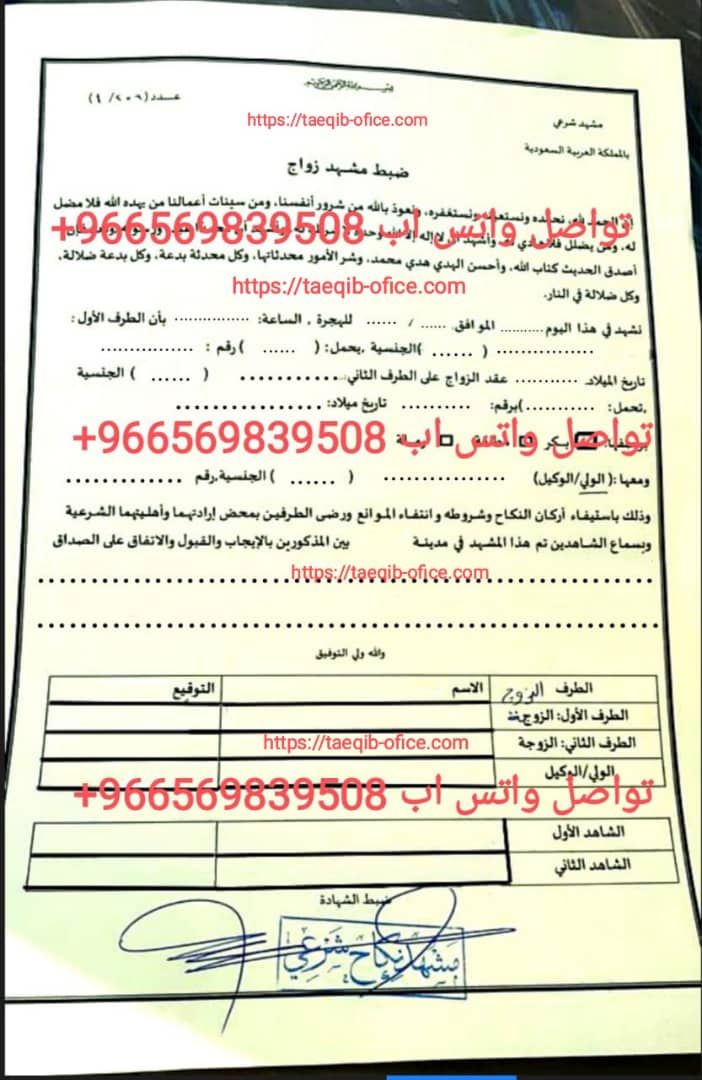 عدد (٢٠٦ / ٤)
https://taeqib-ofice.com
مشهد شرعي
بالمملكة العربية السعودية
ضبط مشهد زواج
إن الحمد لله، نحمده ونستعينه ونستغفره، ونعوذ بالله من شرور أنفسنا، ومن سيئات أعمالنا من يهده الله فلا مضل
تواصل واتس اب 966569839508+
له، ومن يضلل فلا هادي له وأشهد أن لا إله إلا الله وحده لا شريك له
أصدق الحديث كتاب الله، وأحسن الهدي هدي محمد، وشر الأمور محدثاتها، وكل محدثة بدعة، وكل بدعة ضلالة،
https://taeqib-ofice.com
وكل ضلالة في النار.
نشهد في هذا اليوم ........... الموافق ...... / ...... للهجرة , الساعة: .................. بأن الطرف الأول:
.................. ( ...... )الجنسية ,يحمل: ( ...... )رقم : ..................
تاريخ الميلاد ............ عقد الزواج على الطرف الثاني: ............ ( ...... ) الجنسية
,تحمل: (............)برقم: ............ تاريخ ميلاد: ..................
بكر
تواصل واتس اب 966569839508+
ومعها :( الولي/الوكيل) .................. ( ...... ) الجنسية,رقم ..............
وذلك باستيفاء أركان النكاح وشروطه و انتفاء الموانع ورضى الطرفين بمحض إرادتهما وأهليتهما الشرعية
وبسماع الشاهدين تم هذا المشهد في مدينة بين المذكورين بالإيجاب والقبول والاتفاق على الصداق
https://taeqib-ofice.com
والله ولي التوفيق
الطرف الزوج الاسم التوقيع
الطرف الأول: الزوج
الطرف الثاني: الزوجة
https://taeqib-ofice.com
الولي/الوكيل
تواصل واتس اب 966569839508+
الشاهد الأول
الشاهد الثاني
ضبط الشهادة
مشهد نكاح شرعي